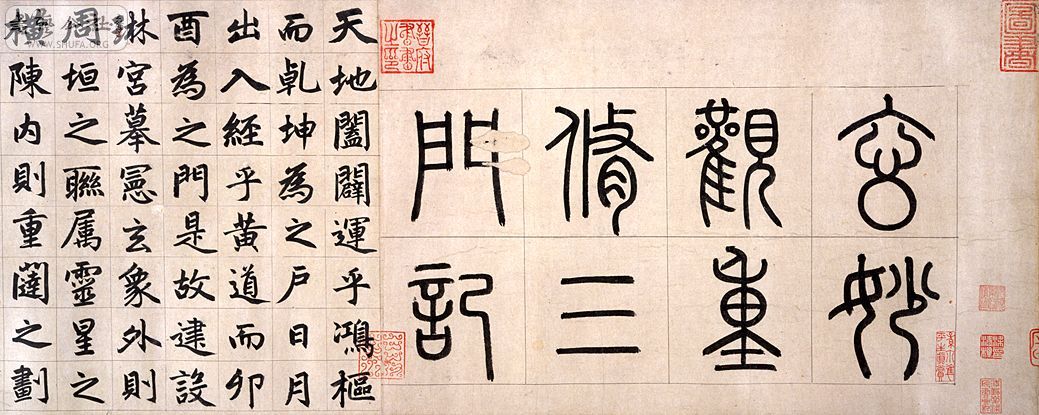 玄妙
觀重
脩三
門記
天地闔闢運乎鴻樞
而乹坤為之戶日月
出入經乎黄道而卯
酉為之門是故建設
琳宮摹憲玄象外則
周垣之聯属靈星之
横陳内則重闥之劃
晉府
書畫
之印
WWW.SHUFA.ORG